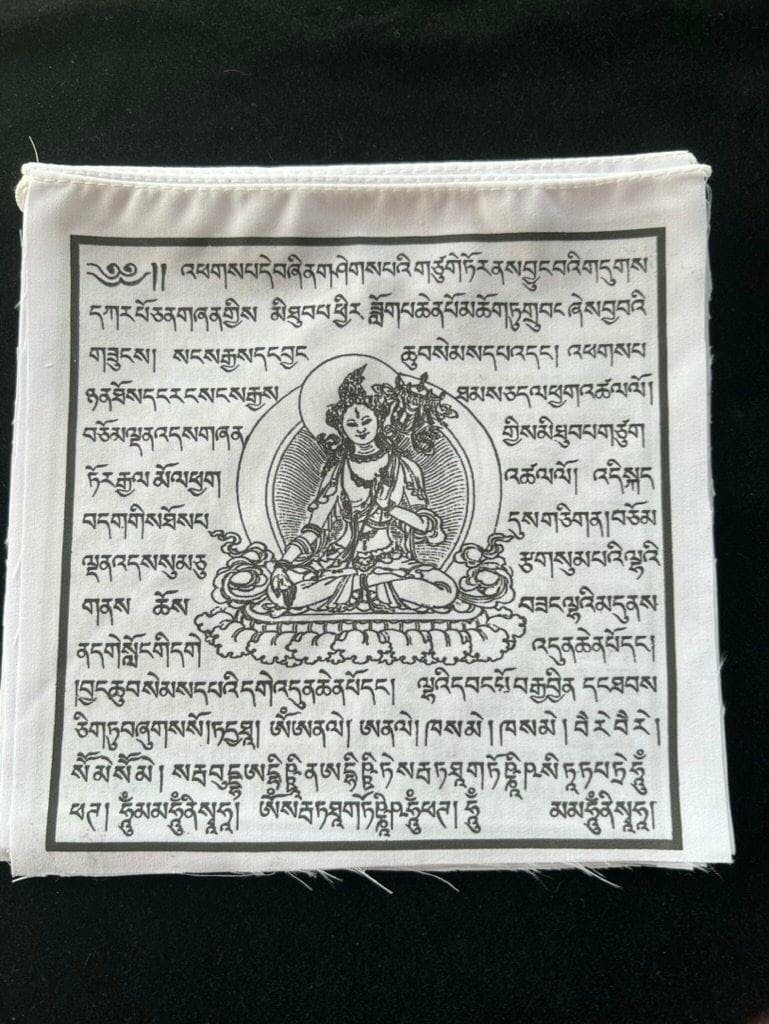 ༄༅།། འཕགས་པ་དེ་བཞིན་གཤེགས་པའི་གཙུག་ཏོར་ནས་བྱུང་བའི་གདུགས
དཀར་པོ་ཅན་གཞན་གྱིས་ མི་ཐུབ་པ་ཕྱིར་ཟློག་པ་ཆེན་པོ་མཆོག་ཏུ་གྲུབ་ང་ཞེས་བྱ་བའི
གཟུངས། སངས་རྒྱས་དང་བྱང་ ཆུབ་སེམས་དཔའ་དང་། འཕགས་པ
ཉན་ཐོས་དང་རང་སངས་རྒྱས་ ཐམས་ཅད་ལ་ཕྱག་འཚལ་ལོ།
བཅོམ་ལྡན་འདས་གཞན་ གྱིས་མི་ཐུབ་པ་གཙུག
ཏོར་རྒྱལ་མོ་ལ་ཕྱག་ འཚལ་ལོ། འདི་སྐད
བདག་གིས་ཐོས་པ་ དུས་གཅིག་ན།བཅོམ
ལྡན་འདས་སུམ་ཅུ་ རྩ་གསུམ་པའི་ལྷའི
གནས་ ཆོས་ བཟང་ལྷའི་མདུན་ས
ན་དགེ་སློང་གི་དགེ་ འདུན་ཆེན་པོ་དང་།
།བྱང་ཆུབ་སེམས་དཔའི་དགེ་འདུན་ཆེན་པོ་དང་། ལྷའི་དབང་པོ་བརྒྱ་བྱིན་དང་ཐབས
ཅིག་ཏུ་བཞུགས་སོ།ཏདྱཐཱ། ཨོཾ་ཨ་ན་ལེ། ཨ་ན་ལེ། ཁ་ས་མེ། ཁ་ས་མེ། བཻ་རེ་བཻ་རེ།
སོཽ་མེ་སོཽ་མེ། སརྦ་བུདྡྷ་ཨ་དྷིཥྛི་ན་ཨ་དྷིཥྛི་ཏེ་སརྦ་ཏ་ཐཱ་ག་ཏོ་ཥྞཱི་ཥ་སི་ཏཱ་ཏ་པ་ཏྲེ་ཧཱུྃ
ཕཊ། ཧཱུྃ་མ་མ་ཧཱུྃ་ནི་སྭཱཧཱ། ཨོཾ་སརྦ་ཏ་ཐཱ་ག་ཏོ་ཥྞཱི་ཥ་ཧཱུྃ་ཕཊ། ཧཱུྃ་ མ་མ་ཧཱུྃ་ནི་སྭཱཧཱ།